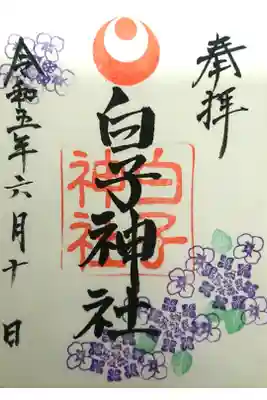 奉拝
白子神社
白子神社
令和五年六月十日